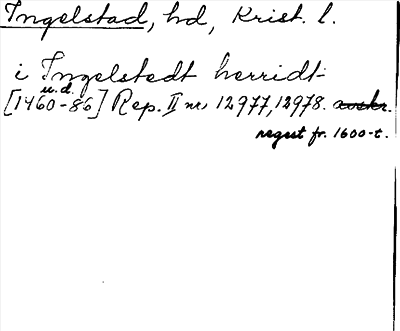 Ingelstad, hd, Krist. l.
i Ingelstedt herridt
u.d.
[1460-86] Rep. II nr. 12977, 12978. avskr.
regest fr. 1600-t.